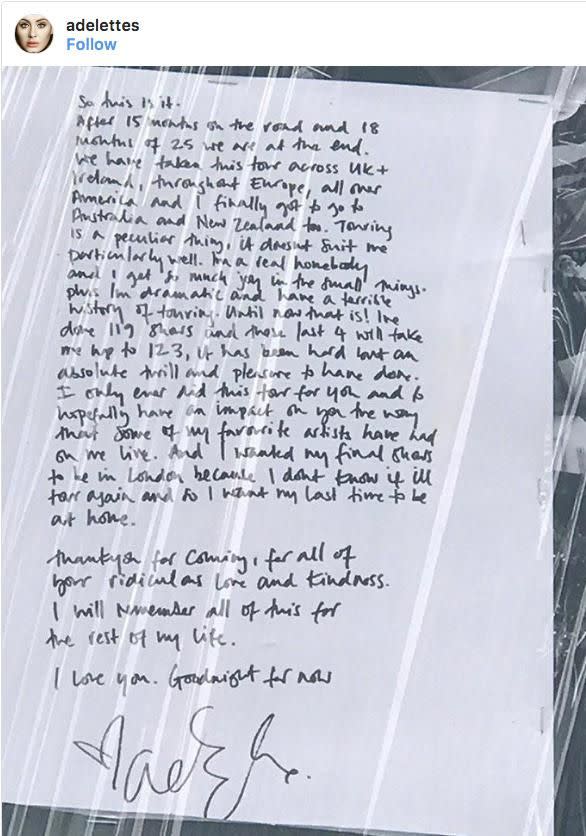 adelettes
Follow
So this is it.
After 15 months on the road and 18
months of 25 we are at the end.
We have taken this tour across UK +
Ireland, throughout Europe, all over
America and I finally got to go to
Australia and New Zealand too. Touring
is a peculiar thing, it doesnt suit me
particularly well. Im a real homebody
and I get so much joy in the small things.
plus Im dramatic and have a terrible
history of touring. Until now that is! Ive
done 119 shows and these last 4 will take
me up to 123, it has been hard but an
absolute thrill and pleasure to have done.
I only ever did this tour for you and to
hopefully have an impact on you the way
that some of my favourite artists have had
on me live. And I wanted my final shows
to be in London because I dont know if ill
tour again and so I want my last time to be
at home.
Thankyou for coming, for all of
your ridiculous love and kindness.
I will remember all of this for
the rest of my life.
I love you. Goodnight for now
Adele